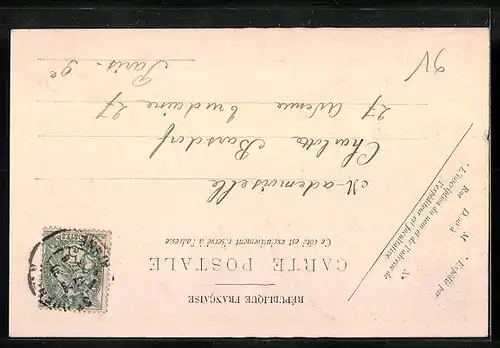 RÉPUBLIQUE FRANÇAISE
CARTE POSTALE
Ce côté est exclusivement réservé à l'adresse
Expédié par
M
Demt à
Rue
No
L'inscription du nom et de l'adresse de
l'expéditeur est facultative.
Mademoiselle
Charlotte Barsdorf
27 Avenue Trudaine 27
Paris. 9e